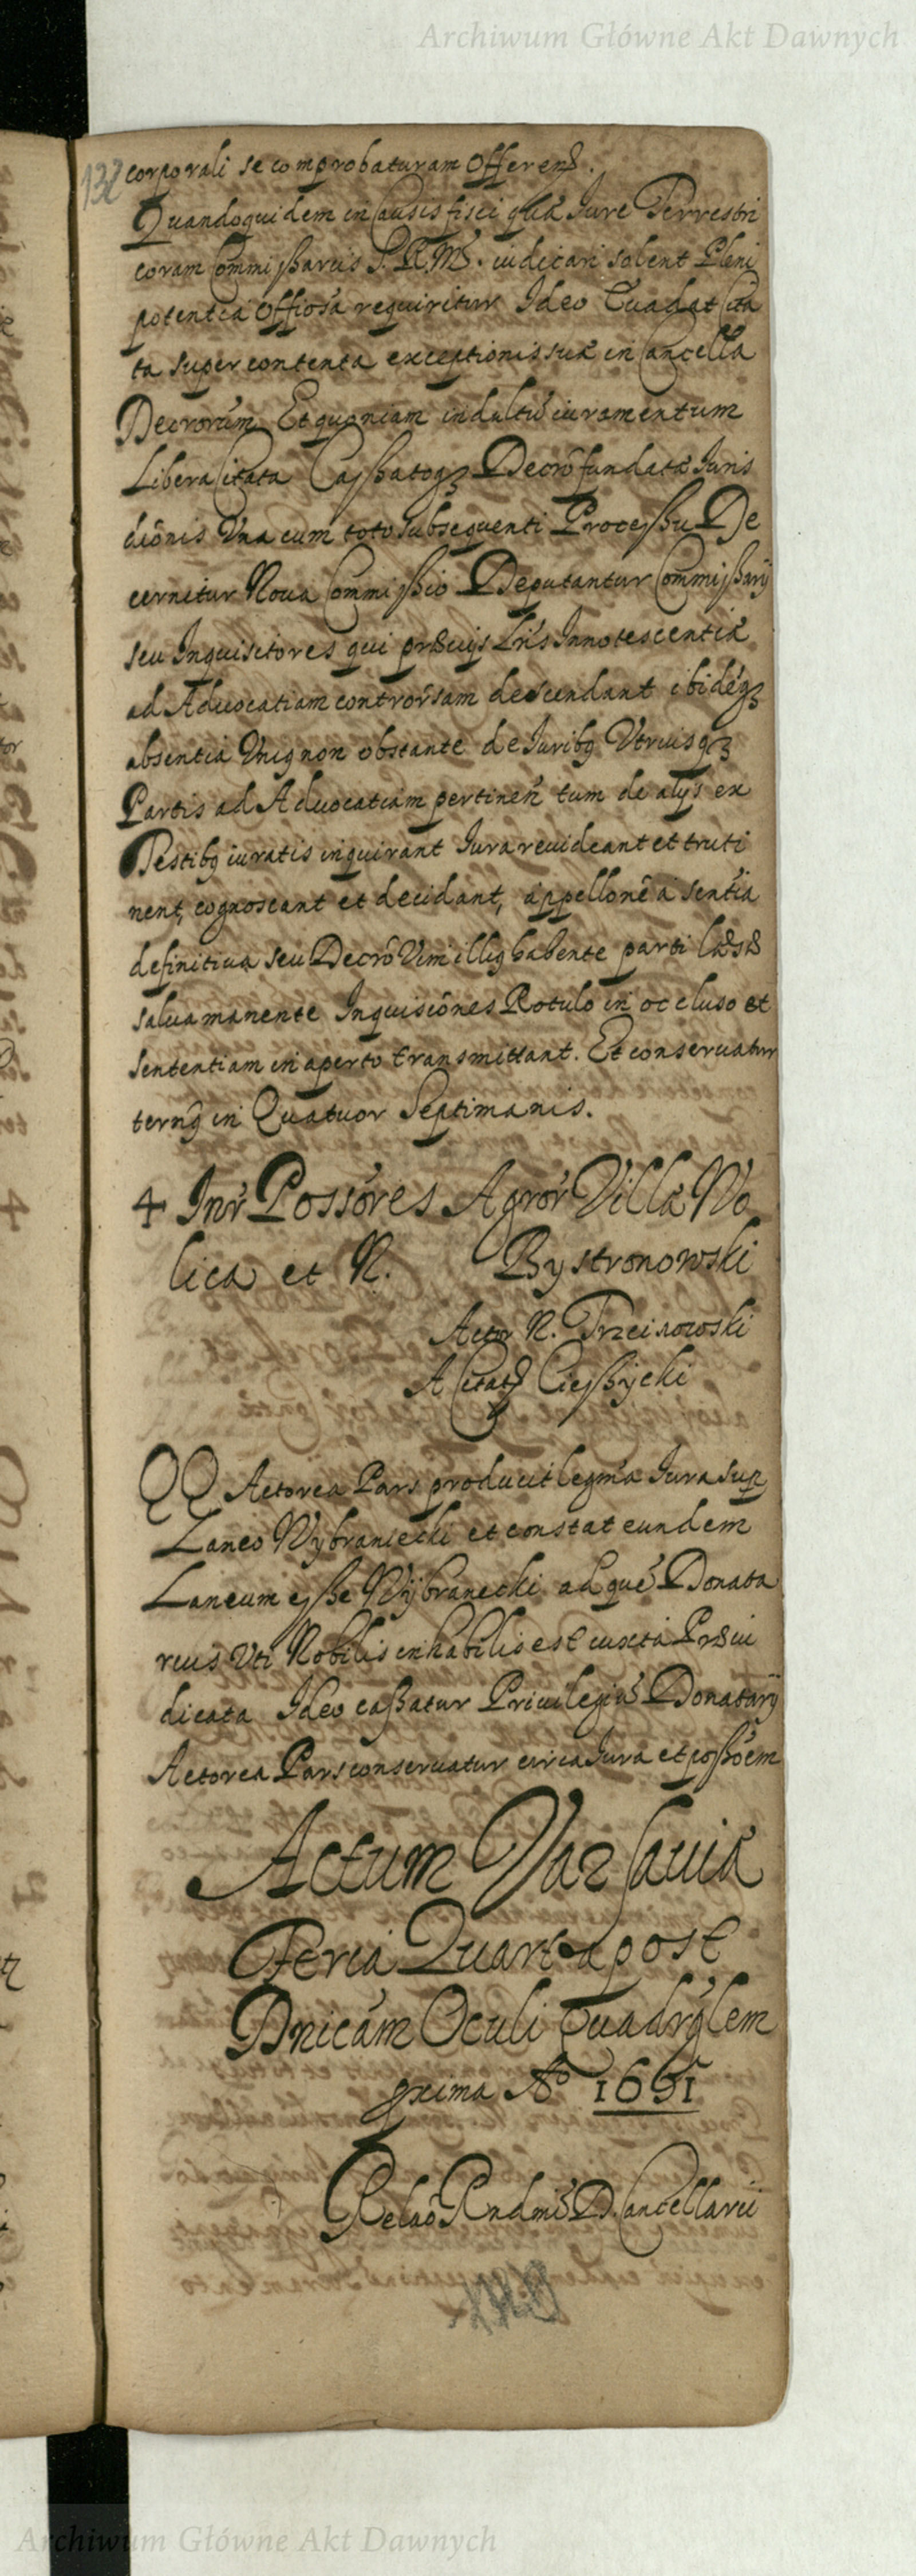 Archiwum Główne Akt Dawnych
132 corporali se comprobaturam Offeren.
Quandoquidem in Causis fisci quæ Iure Terrestri
coram Commissarijs S. R. M. iudicari solent Pleni
potentia Offiosa requiritur Ideo Cita
ta super contenta exceptionis suæ in Cancella
Decrorum Et quoniam indultu iuramentum
Libera Citata Cassatoq3 Decro fundatæ Iuris
diõnis Una cum toto subsequenti Processu De
cernitur Noua Commissio Deputantur Commissarij
seu Inquisitores qui præuijs Lris Innotescentiæ
ad Aduocatiam controrsam descendant ibideq3
absentia Unig non obstante de Iuribg Utriusq3
Partis ad Aduocatiam pertinen tum de alijs ex
Testibg iuratis inquirant Iura reuideant et truti
nent, cognoscant et decidant, appellone a sentia
definitiua seu Decro Vim illig habente parti læsæ
salua manente Inquisiones Rotulo in occluso et
sententiam in aperto transmittant. Et conseruatur
terng in Quatuor Septimanis.
4 Inr Possores Agror Villæ Wo
lica et N. Bystronowski
Actor N. Trzcinowski
A Citat Ciessijcki
Actorea Pars producit legma Iura sup
Laneo Wybraniecki et constat eundem
Laneum esse Wijbranecki ad que Donata
rius Uti Nobilis inhabilis est iuxta Præiu
dicata Ideo cassatur Priuilegiu Donatarij
Actorea Pars conseruatur circa Iura et possoem
Actum Varsauiæ
Feria Quarta post
Dnicam Oculi Quadrglem
pxima Ao 1691
Relao Rndmi D. Cancellarii
Archiwum Główne Akt Dawnych